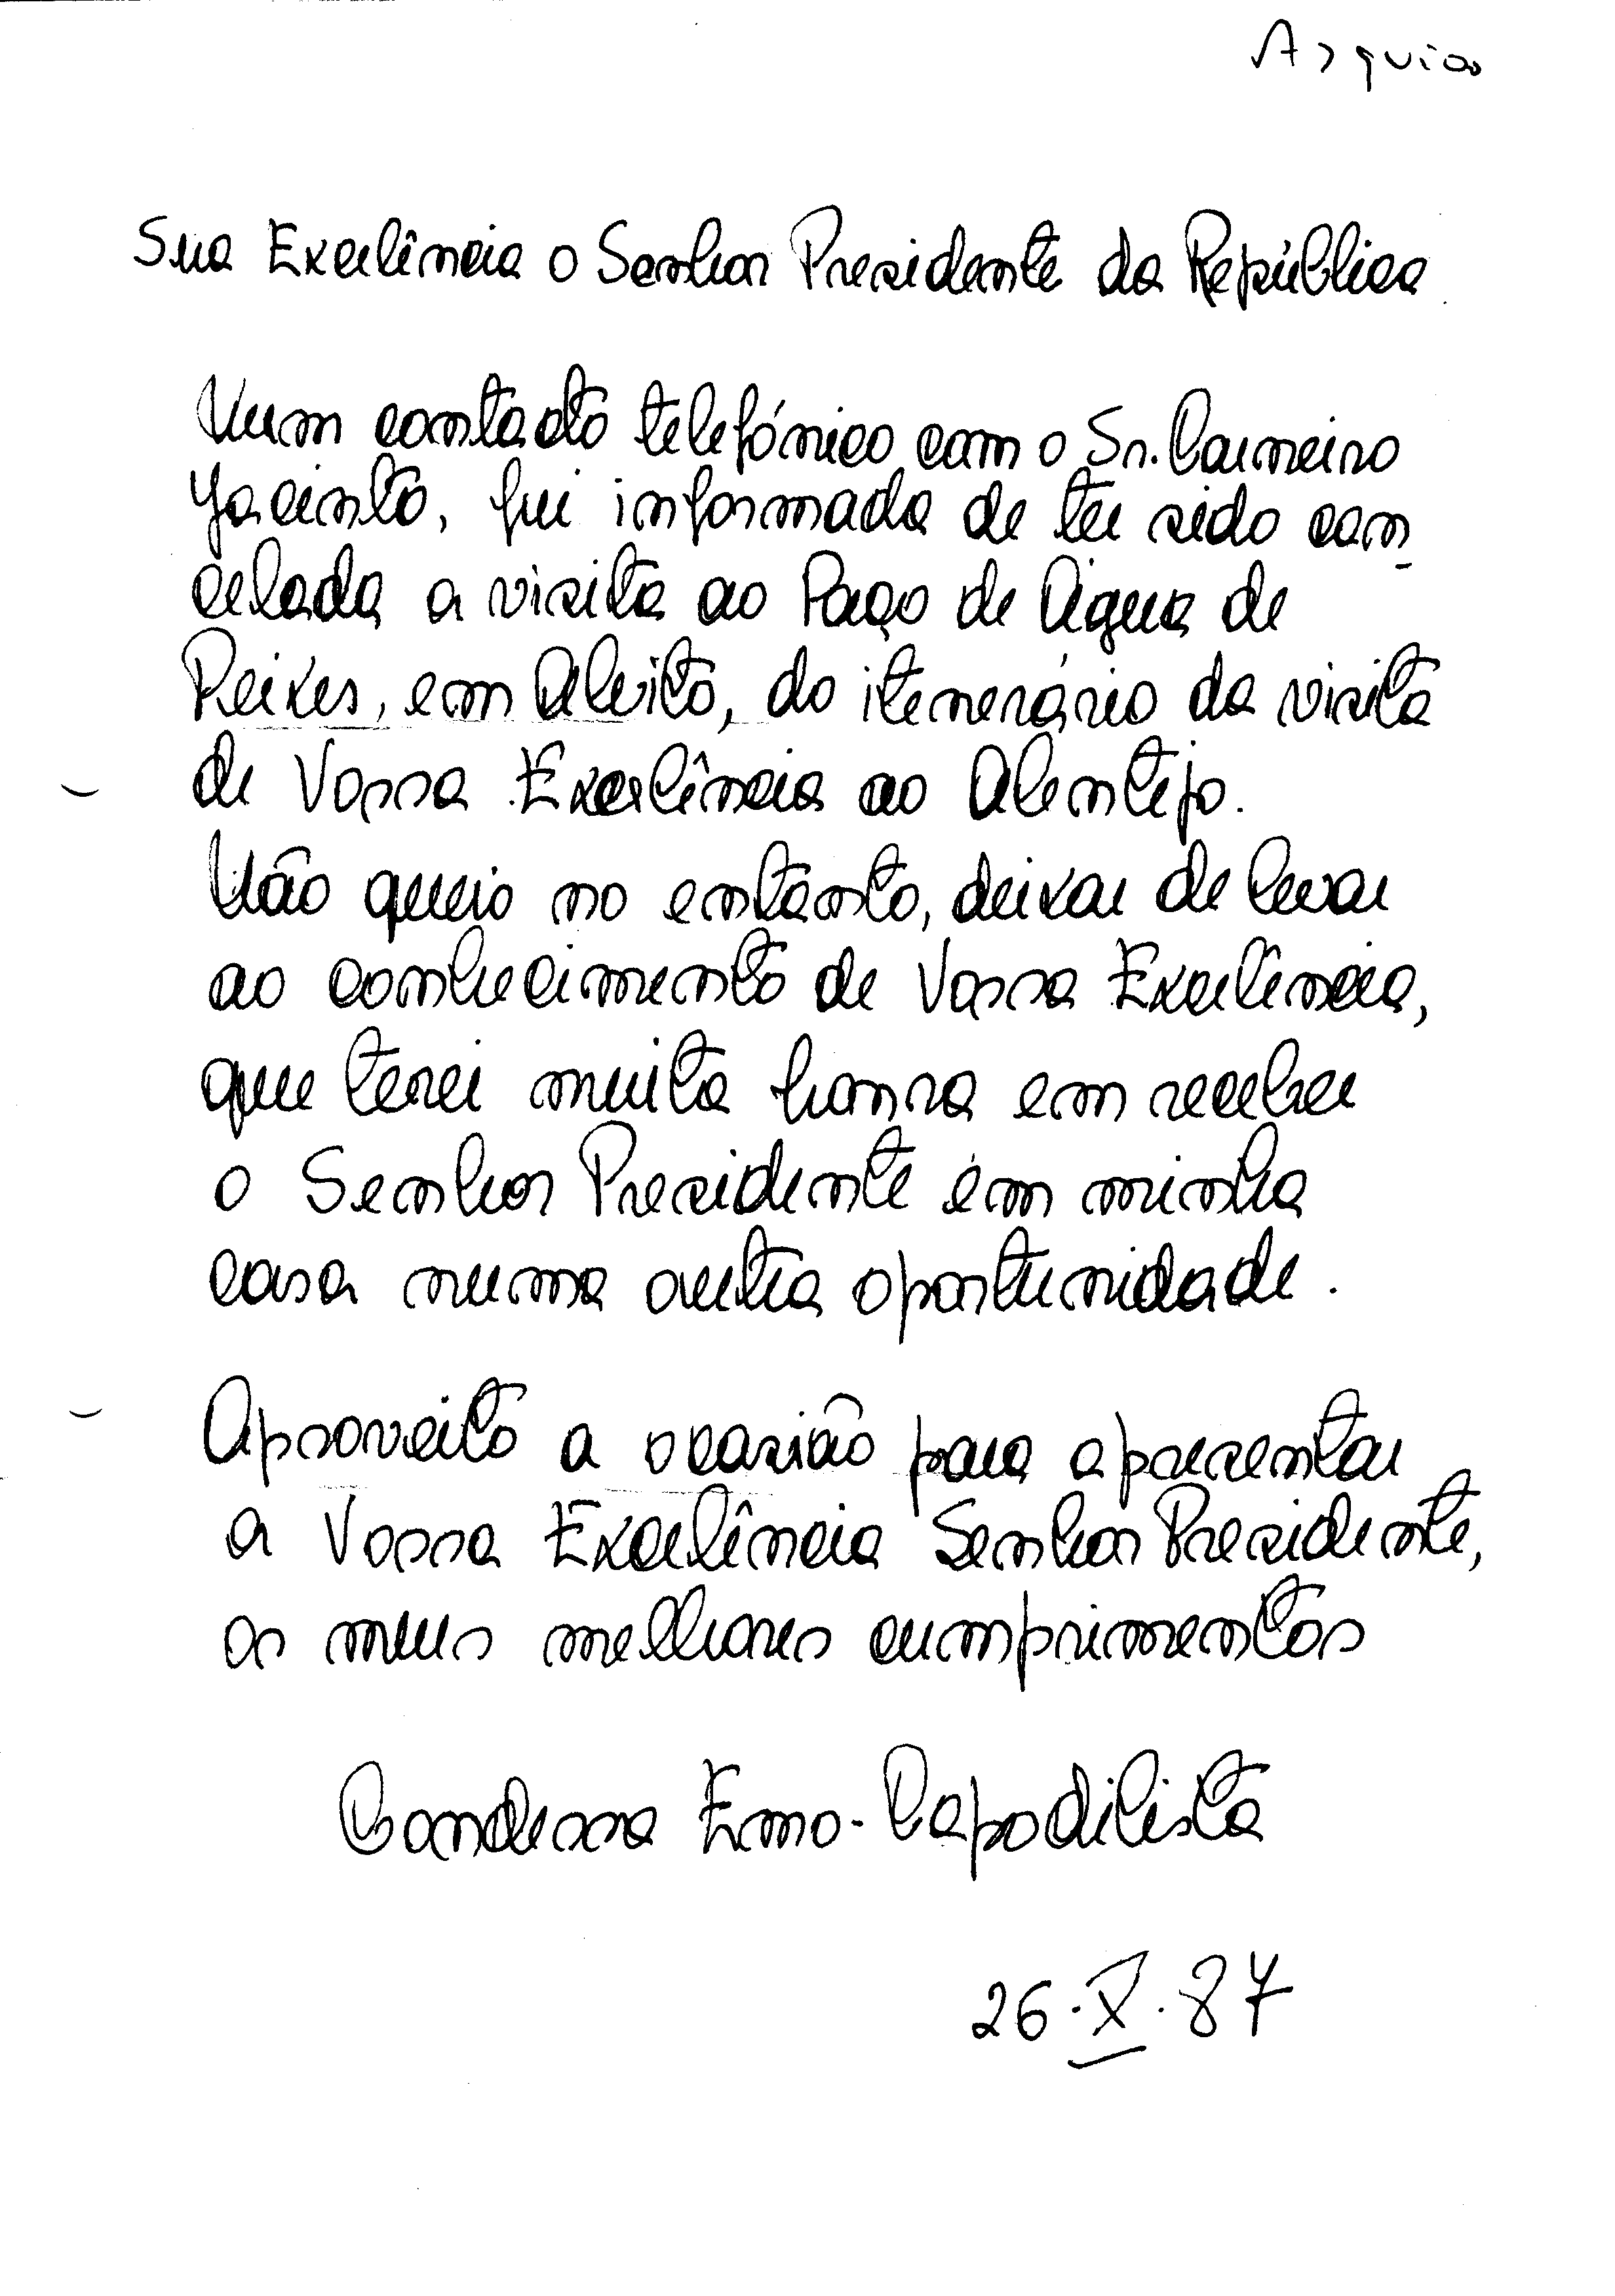 Sua Excelência o Senhor Presidente da República
Num contacto telefónico com o Sr. Carneiro
Jacinto, fui informada de ter sido can
celada a visita ao Paço de Água de
Peixes, em Alvito, do itenerário da visita
de Vossa Excelência ao Alentejo.
Não quero no entanto, deixar de levar
ao conhecimento de Vossa Excelência,
que terei muita honra em receber
o Senhor Presidente em minha
casa numa outra oportunidade.
Aproveito a ocasião para apresentar
a Vossa Excelência Senhor Presidente,
os meus melhores cumprimentos
Condessa Emo-Capodilista
26.X.87